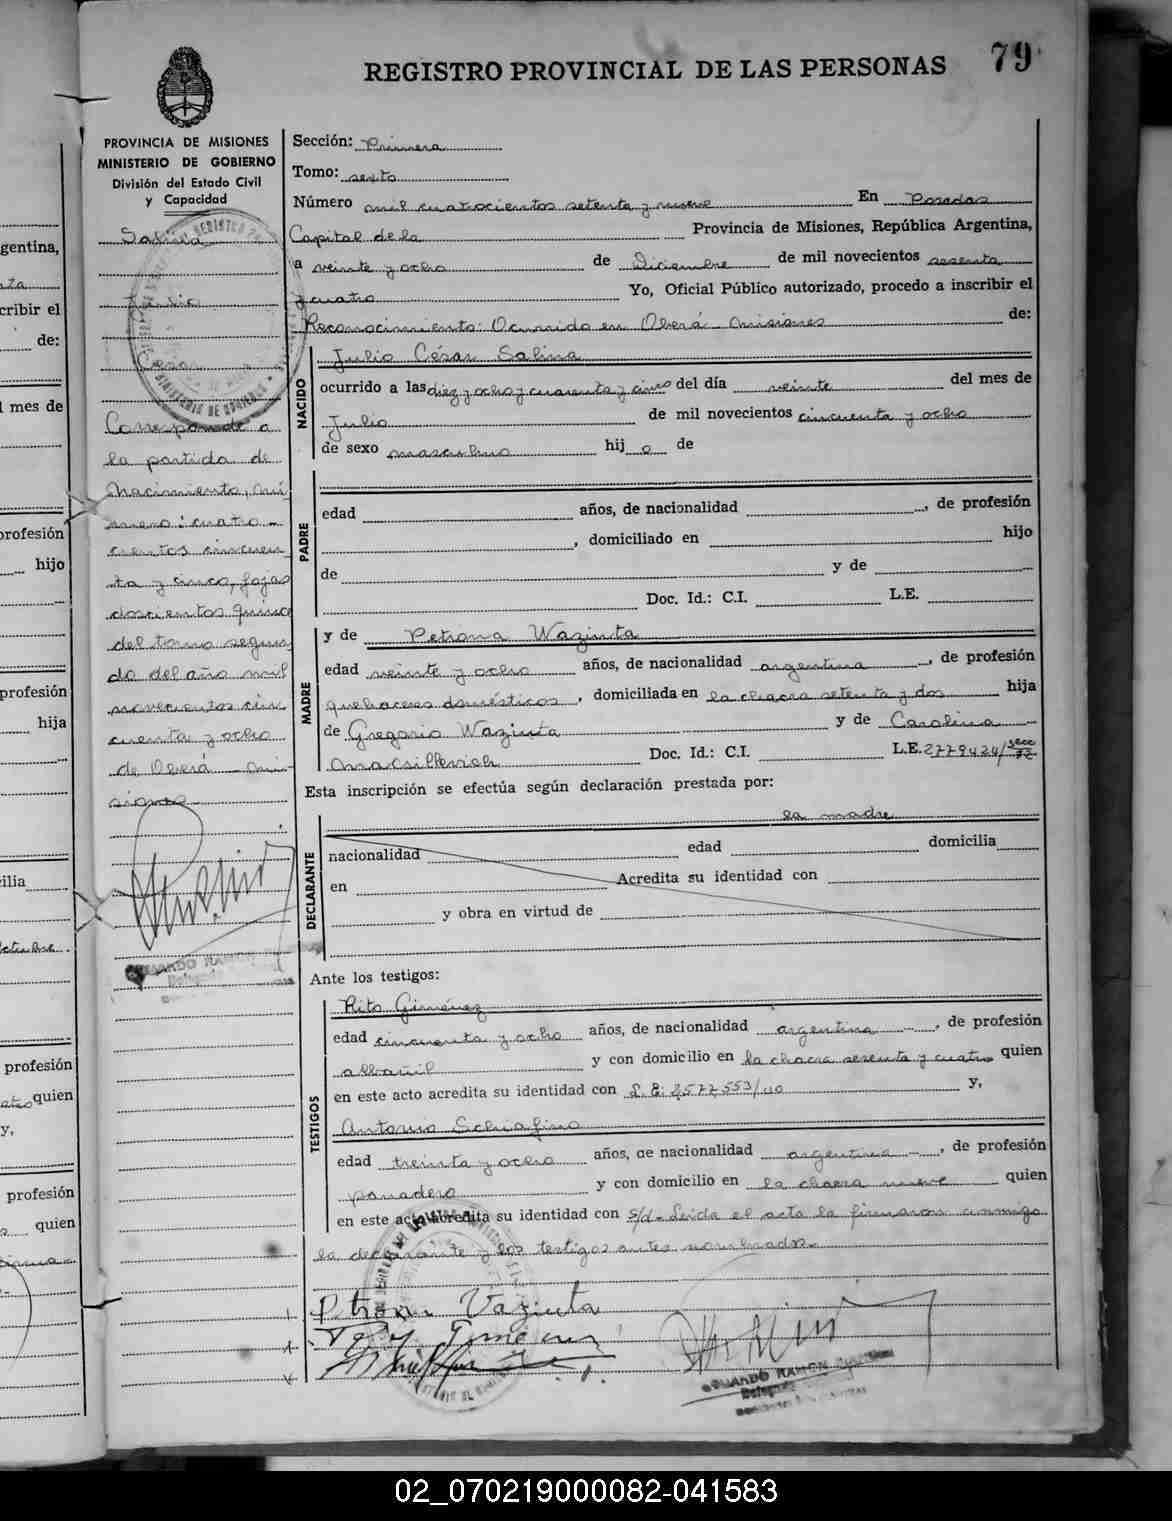 79
REGISTRO PROVINCIAL DE LAS PERSONAS
PROVINCIA DE MISIONES
MINISTERIO DE GOBIERNO
División del Estado Civil
y Capacidad
Salina
Julio
Cesar
Corresponde a
la partida de
Nacimiento, nú
mero: cuatro-
cientos cincuen
ta y cinco, fojas
doscientos quince
del tomo segun
do del año mil
novecientos cin
cuenta y ocho
de Oberá - Mi
siones
Sección: Primera
Tomo: sexto
Número mil cuatrocientos setenta y nueve En Posadas
Capital de la Provincia de Misiones, República Argentina,
a veinte y ocho de Diciembre de mil novecientos sesenta
y cuatro Yo, Oficial Público autorizado, procedo a inscribir el
Reconocimiento: Ocurrido en Oberá - Misiones de:
NACIDO
Julio César Salina
ocurrido a las diez y ocho y cuarenta y cinco del día veinte del mes de
Julio de mil novecientos cincuenta y ocho
de sexo masculino hij o de
PADRE
edad años, de nacionalidad , de profesión
, domiciliado en hijo
de y de
Doc. Id.: C.I. L.E.
MADRE
y de Petrona Waziuta
edad veinte y ocho años, de nacionalidad argentina , de profesión
quehaceres domésticos , domiciliada en la chacra setenta y dos hija
de Gregorio Waziuta y de Carolina
Doc. Id.: C.I. L.E. 2779424/
Esta inscripción se efectúa según declaración prestada por:
la madre
DECLARANTE
nacionalidad edad domicilia
en Acredita su identidad con
y obra en virtud de
Ante los testigos:
TESTIGOS
Rito Giménez
edad cincuenta y ocho años, de nacionalidad argentina , de profesión
albañil y con domicilio en la chacra sesenta y cuatro quien
en este acto acredita su identidad con L.E. 2577553/ y,
Antonio Schiafino
edad treinta y ocho años, de nacionalidad argentina , de profesión
panadero y con domicilio en la chacra nueve quien
en este acto acredita su identidad con s/d - Leída el acta la firmaron conmigo
la declarante y los testigos antes nombrados.
Petrona Vaziuta
EDUARDO RAMON
02_070219000082-041583